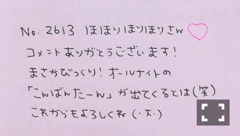 No. 2613 ほほりほりほりさん♡
コメントありがとうございます！
まさかびっくり！オールナイトの
「こんばんたーん」が出てくるとは(笑)
これからもよろしくね(・x・)